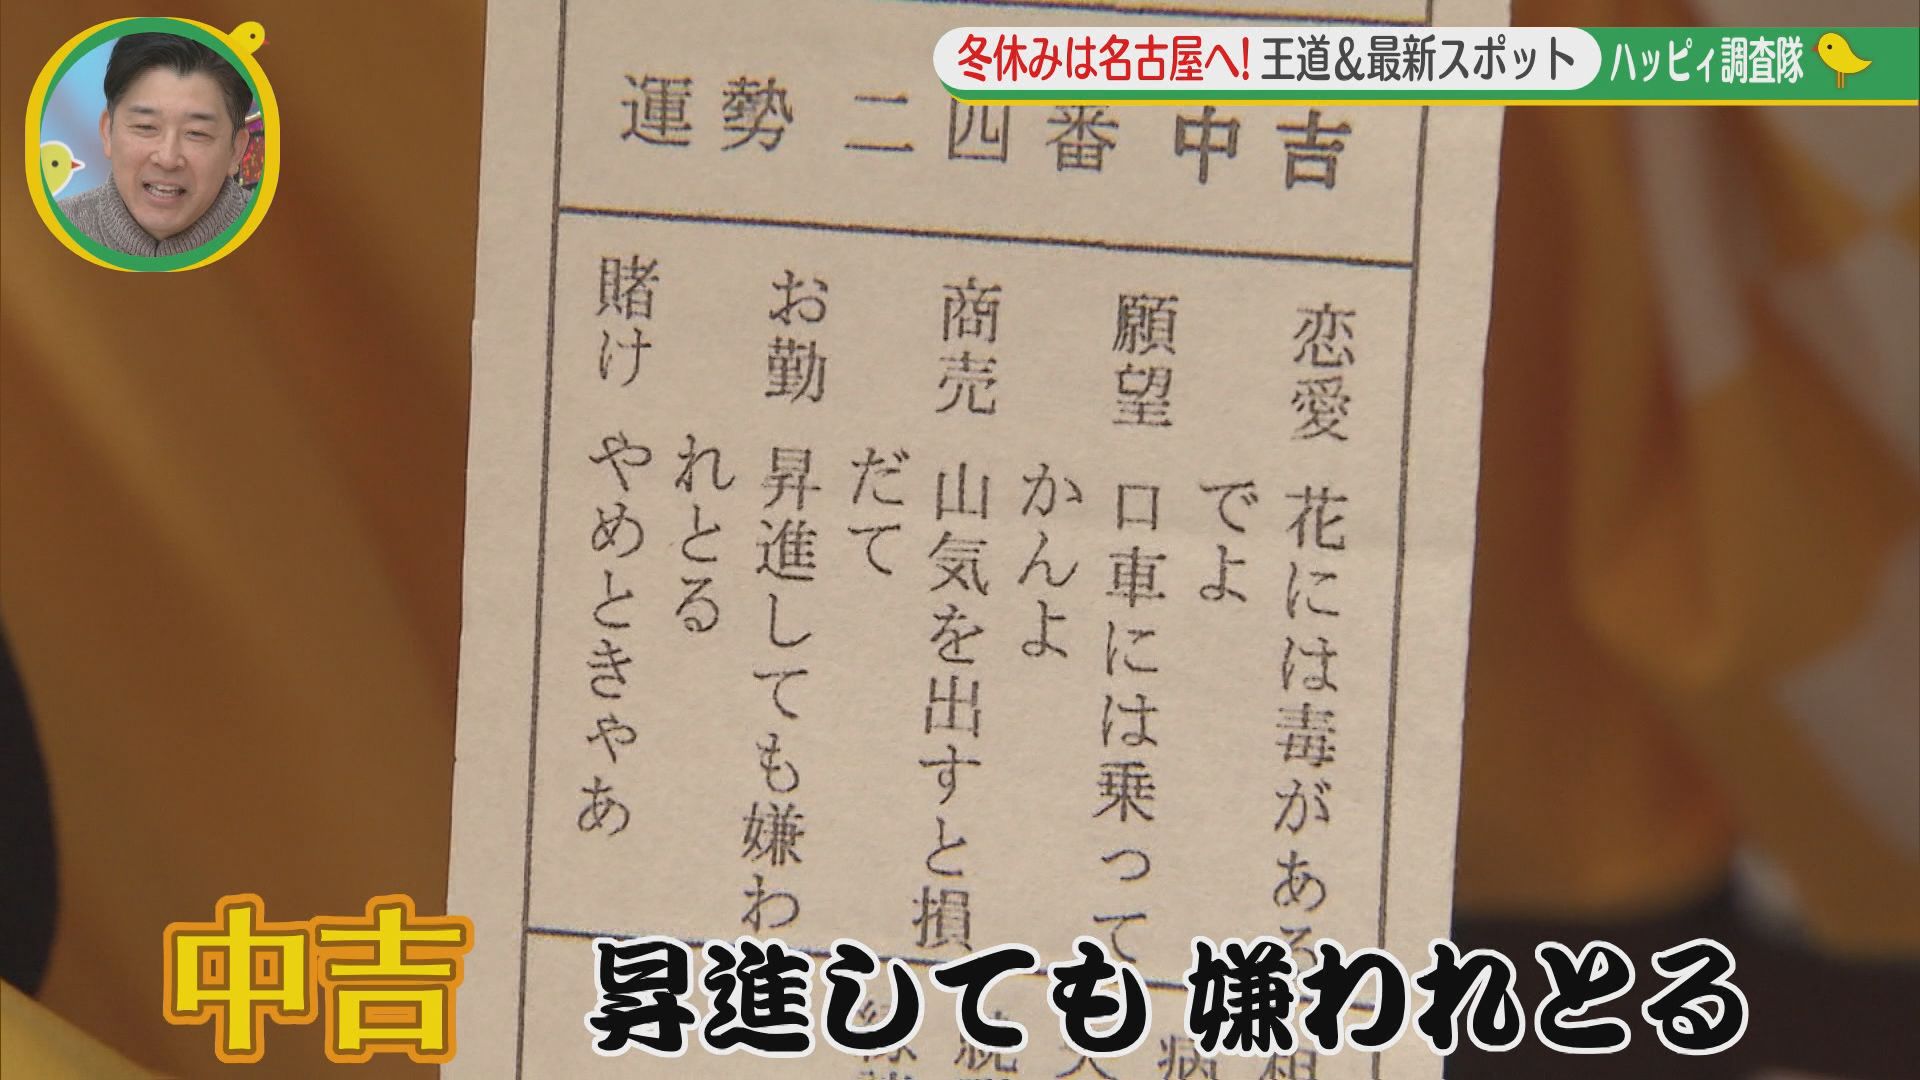 冬休みは名古屋へ!王道&最新スポット
ハッピィ調査隊
運勢 二四番 中吉
恋愛 花には毒がある
でよ
願望 口車には乗って
かんよ
商売 山気を出すと損
だて
お勤 昇進しても嫌わ
れとる
賭け やめときゃあ
病
中吉
昇進しても 嫌われとる